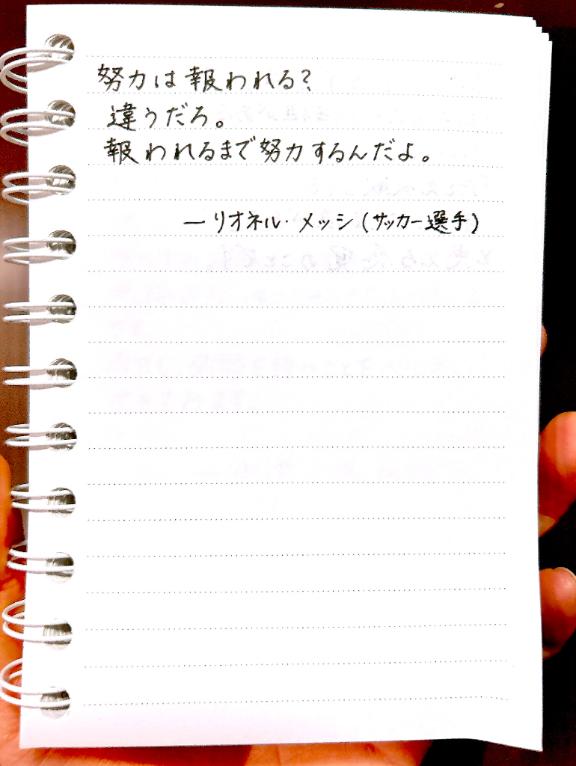 努力は報われる?
違うだろ。
報われるまで努力するんだよ。
ーリオネル・メッシ(サッカー選手)